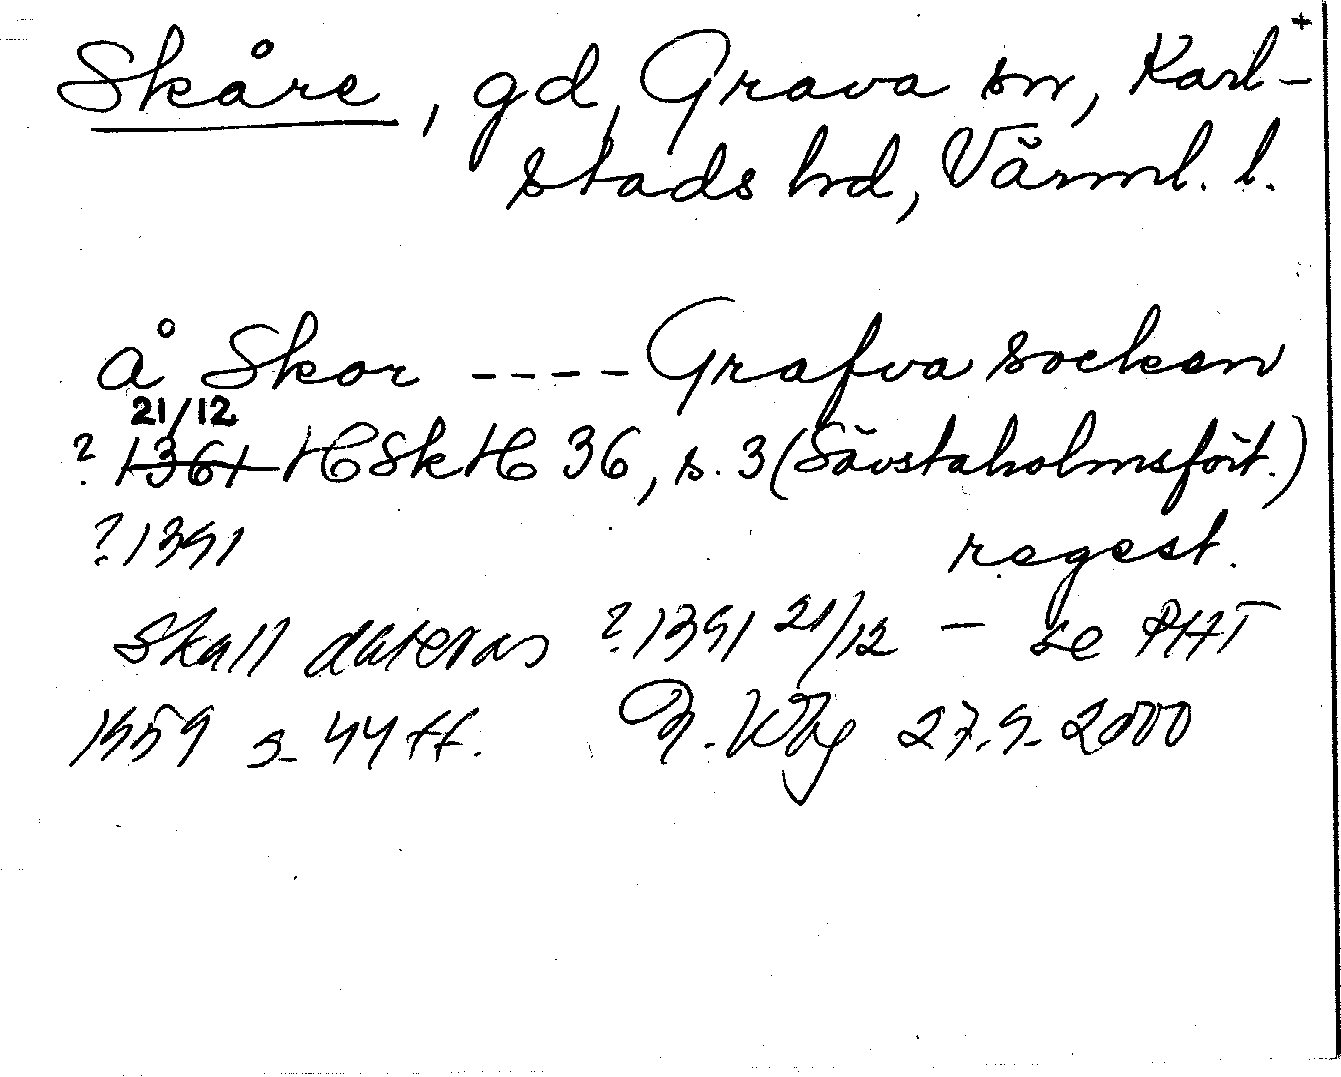 +
Skåre, gd, Grava sn, Karl-
stads hd, Värml. l.
å Skor ---- Grafva socken
21/12
? 1361 HSkH 36, s. 3 (Sävstaholmsfört.)
? 1391 regest.
Skall dateras ? 1391 21/12 – se PHT
1959 s. 44 ff. 27.9.2000